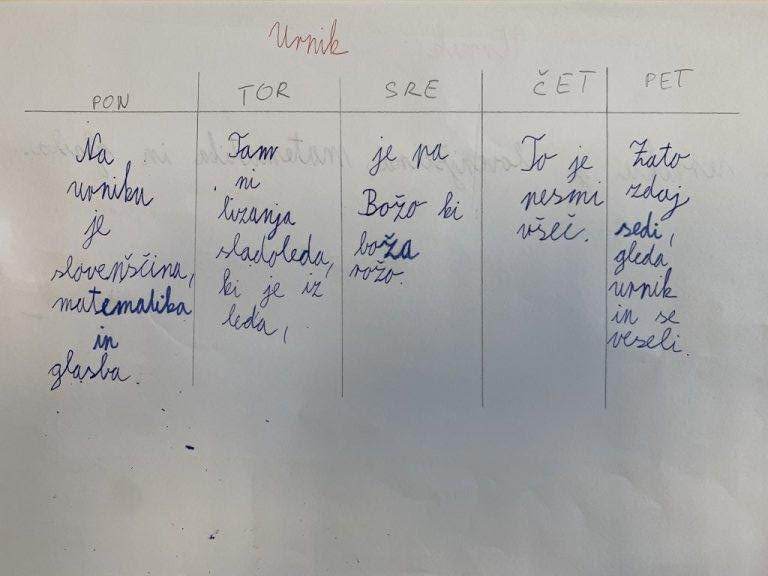 Urnik
PON TOR SRE ČET PET
Na
urniku
je
slovenščina,
matematika
in
glasba.
Tam
ni
lizanja
sladoleda,
ki je iz
leda,
je pa
Božo ki
boža
rožo.
To je
pesmi
všeč.
Zato
zdaj
sedi,
gleda
urnik
in se
veseli.